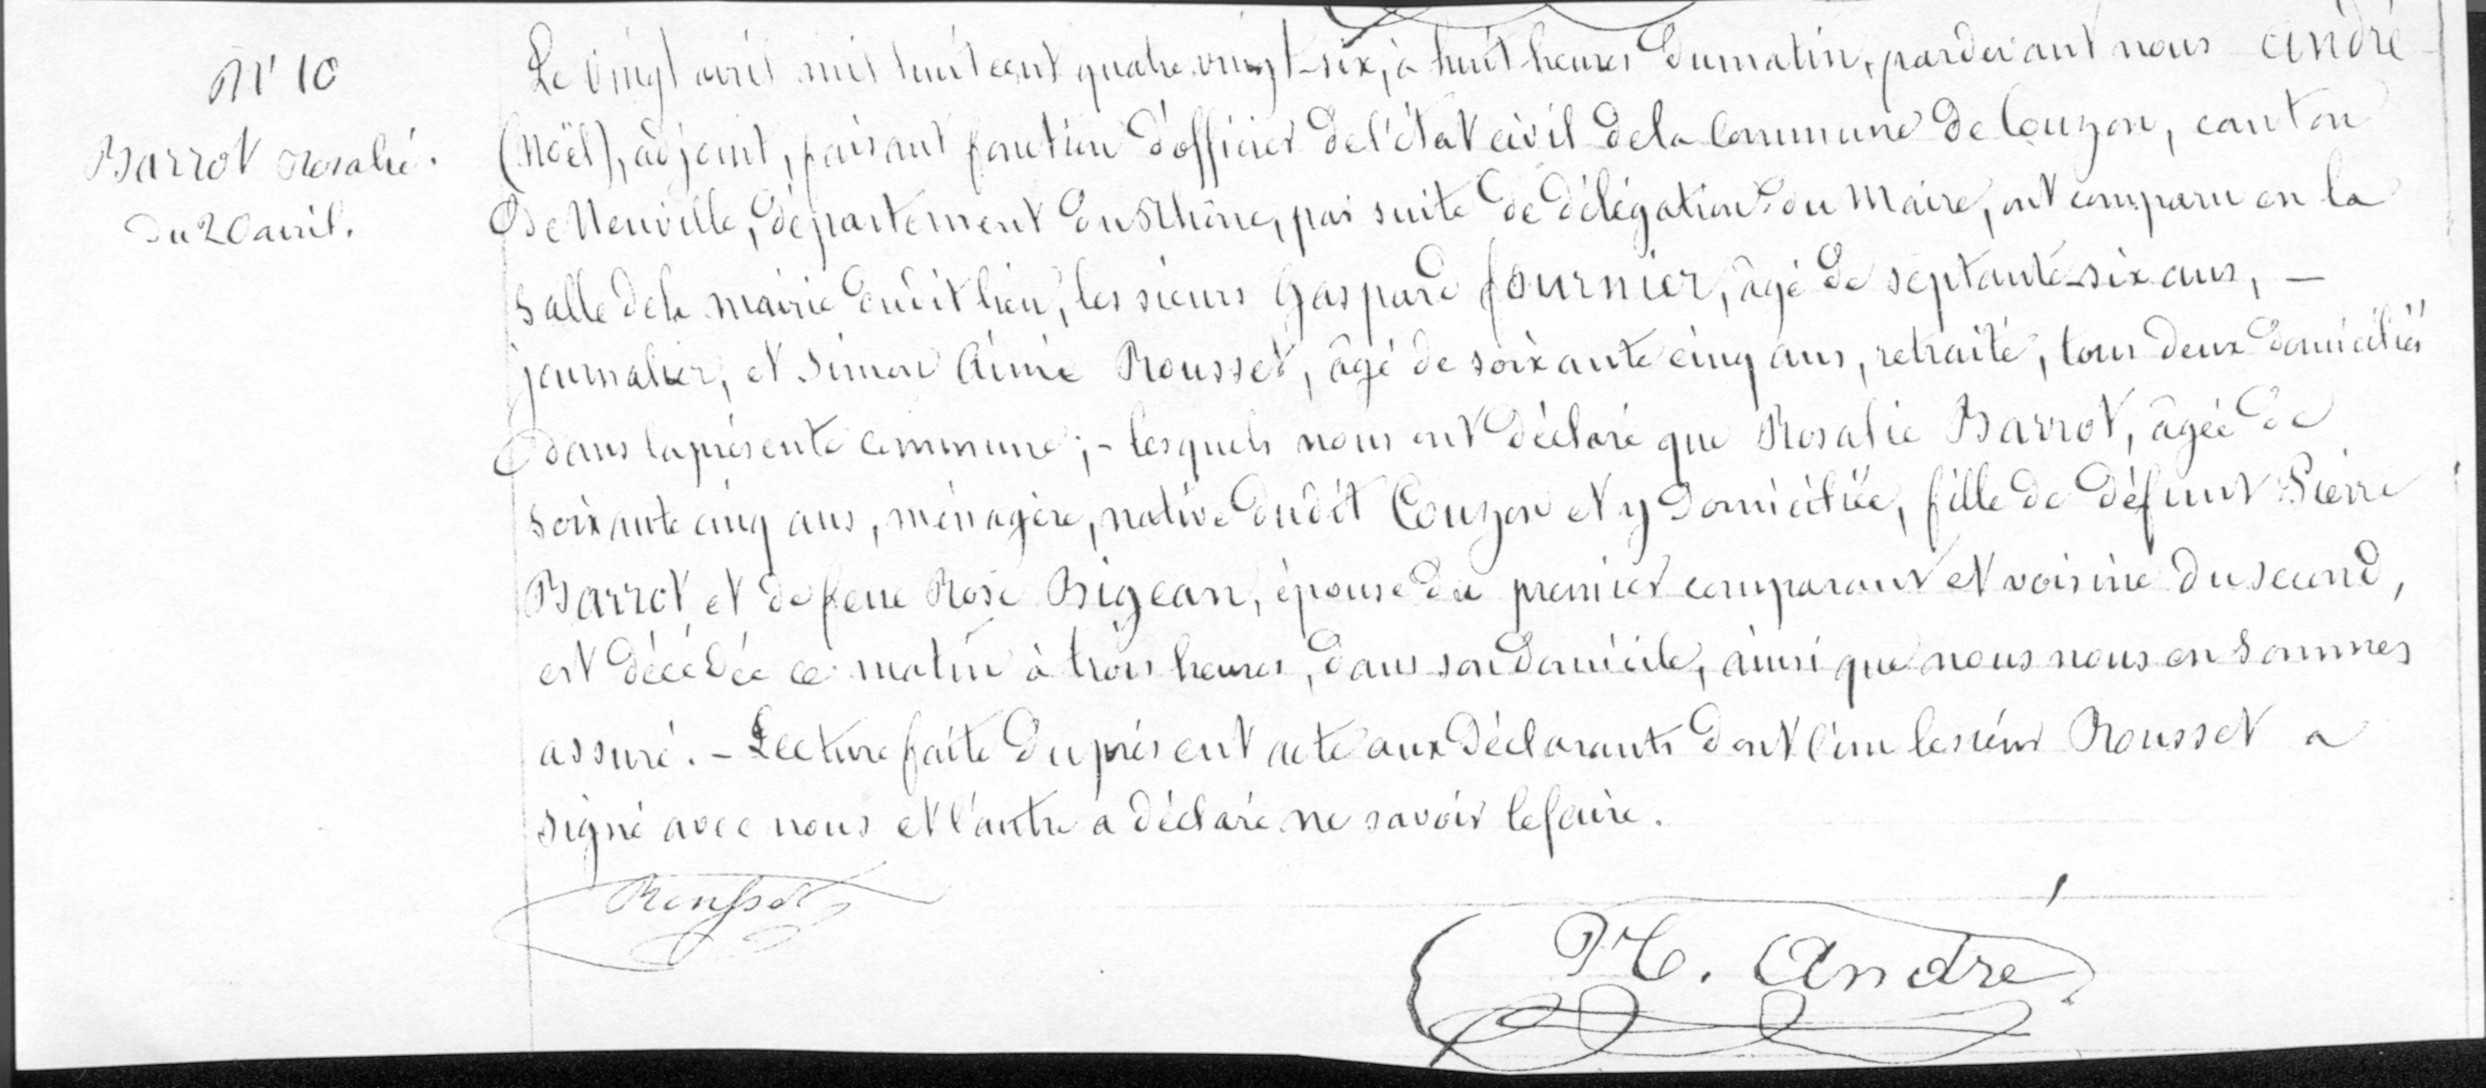 N° 10
Barrot Rosalie.
du 20 avril.
Le vingt avril mil huit cent quatre-vingt-six, à huit heures du matin, pardevant nous André
(Noël), adjoint, faisant fonction d'officier de l'état civil de la Commune de Couzon, canton
de Neuville, département du Rhône, par suite de délégation du Maire, ont comparu en la
salle de la mairie dudit lieu, les sieurs Gaspard Fournier, âgé de septante-six ans, –
journalier, et Simon Aimé Rousset, âgé de soixante cinq ans, retraité, tous deux domiciliés
dans la présente commune; – lesquels nous ont déclaré que Rosalie Barrot, âgée de
soixante cinq ans, ménagère, native dudit Couzon et y domiciliée, fille de défunt Pierre
Barrot et de feue Rose Bigean, épouse du premier comparant et voisine du second,
est décédée ce matin à trois heures, dans son domicile, ainsi que nous nous en sommes
assuré. – Lecture faite du présent acte aux déclarants dont l'un le sieur Rousset a
signé avec nous et l'autre a déclaré ne savoir le faire.
Rousset
N. André